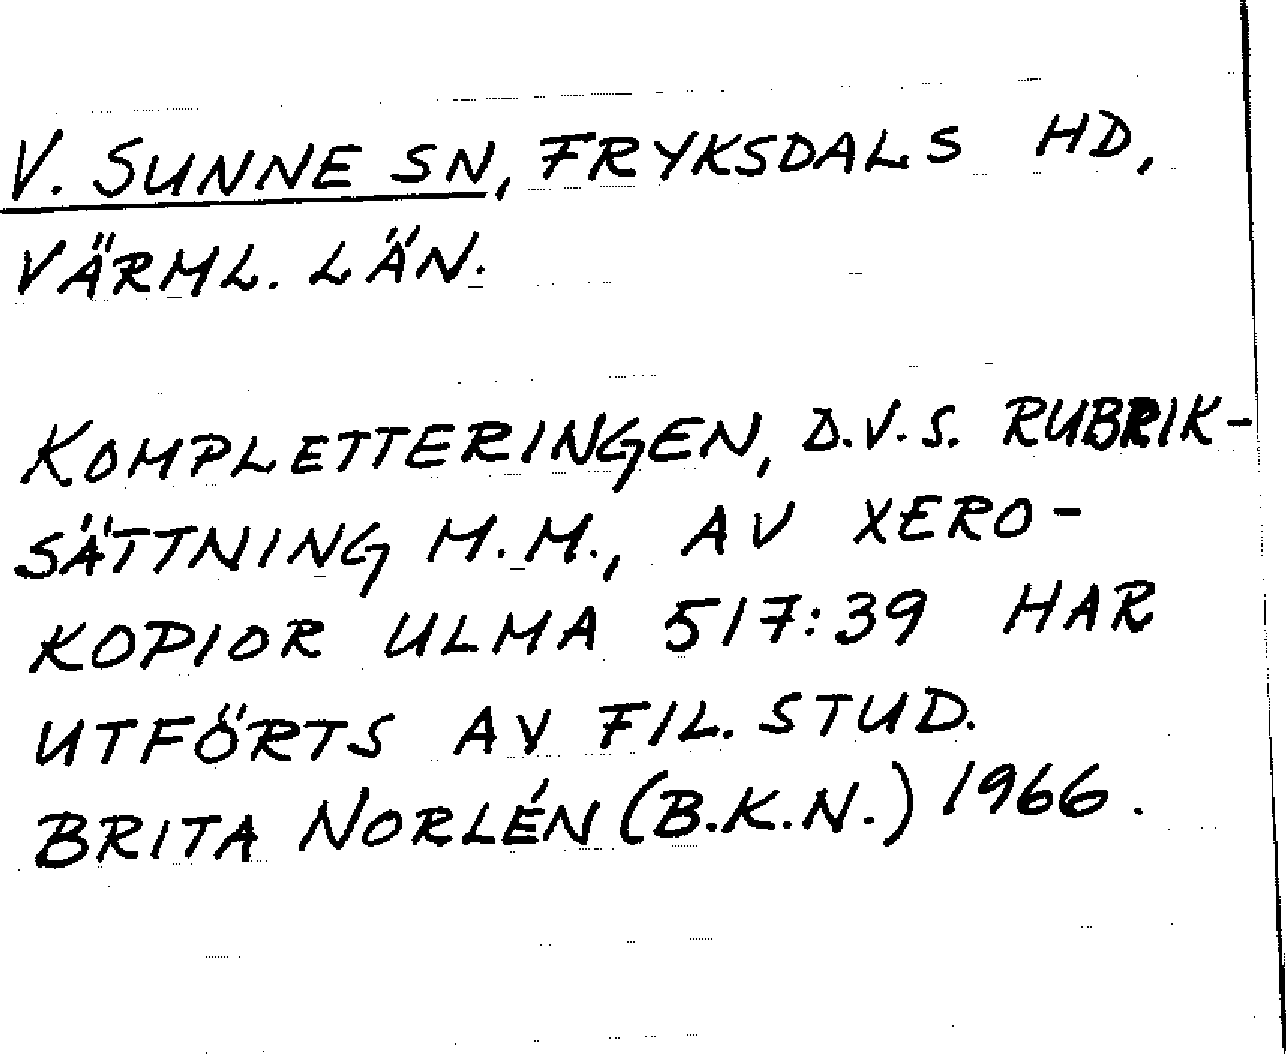 V. SUNNE SN, FRYKSDALS HD,
VÄRML. LÄN.
KOMPLETTERINGEN, D.V.S. RUBRIK-
SÄTTNING M.M., AV XERO-
KOPIOR ULMA 517:39 HAR
UTFÖRTS AV FIL. STUD.
BRITA NORLÉN (B.K.N.) 1966.